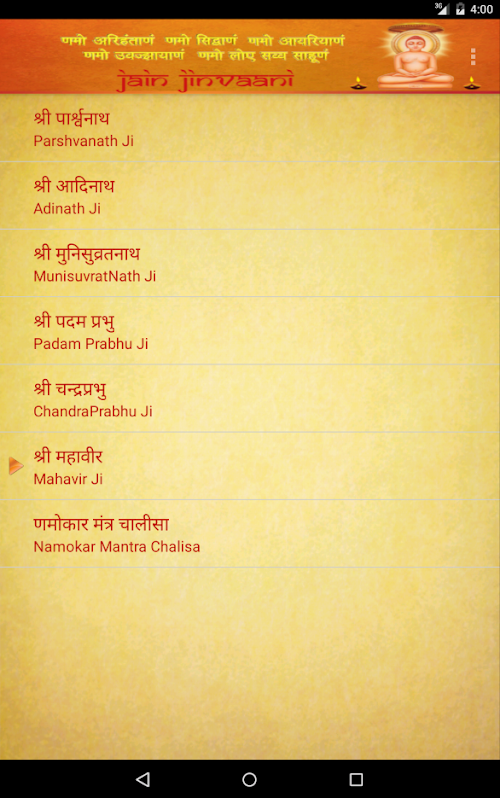 3G 4:00
णमो अरिहंताणं णमो सिद्धाणं णमो आयरियाणं
णमो उवज्झायाणं णमो लोए सव्व साहूणं
jain jinvaani
श्री पार्श्वनाथ
Parshvanath Ji
श्री आदिनाथ
Adinath Ji
श्री मुनिसुव्रतनाथ
MunisuvratNath Ji
श्री पदम प्रभु
Padam Prabhu Ji
श्री चन्द्रप्रभु
ChandraPrabhu Ji
श्री महावीर
Mahavir Ji
णमोकार मंत्र चालीसा
Namokar Mantra Chalisa